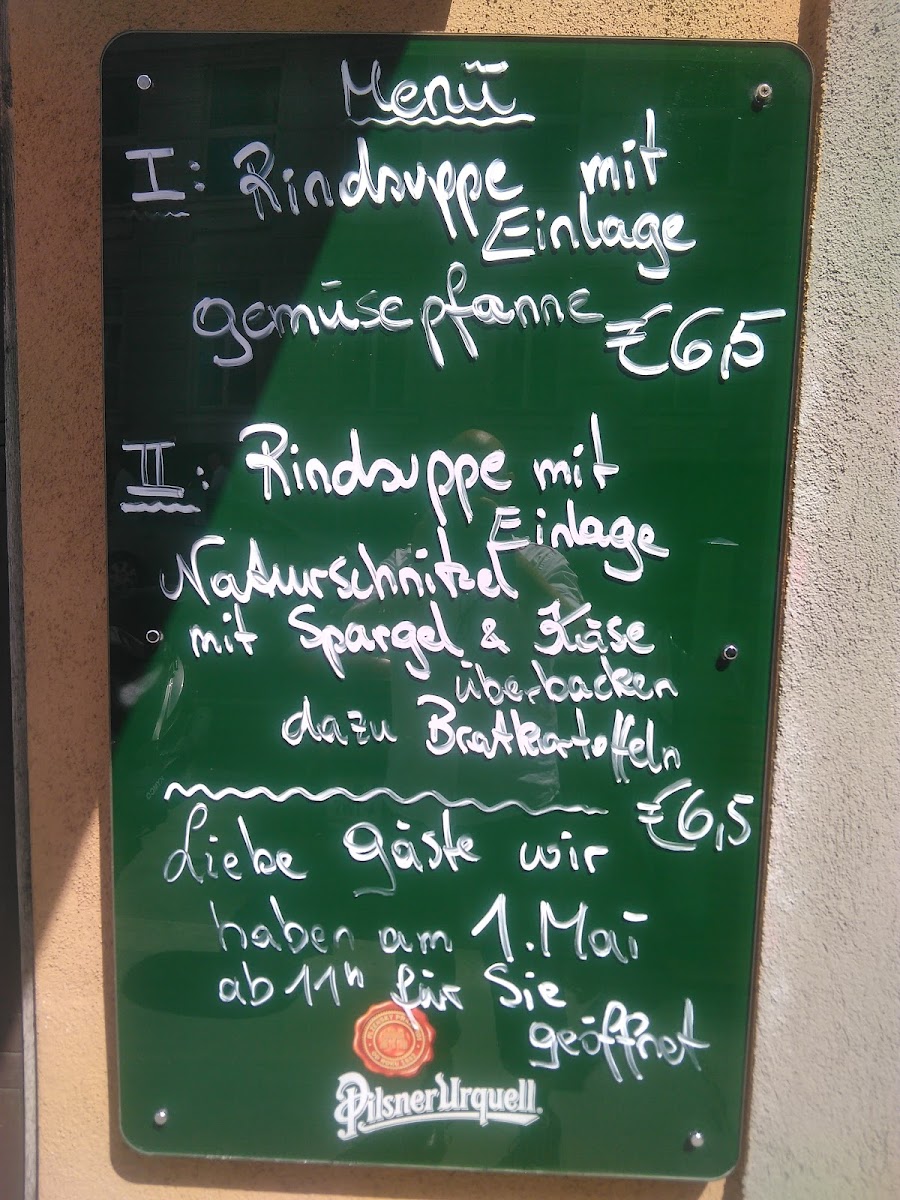 Menü
I: Rindsuppe mit
Einlage
gemüsepfanne €6,5
II: Rindsuppe mit
Einlage
Naturschnitzel
mit Spargel & Käse
überbacken
dazu Bratkartoffeln
€6,5
Liebe Gäste wir
haben am 1. Mai
ab 11h für Sie
geöffnet
Pilsner Urquell